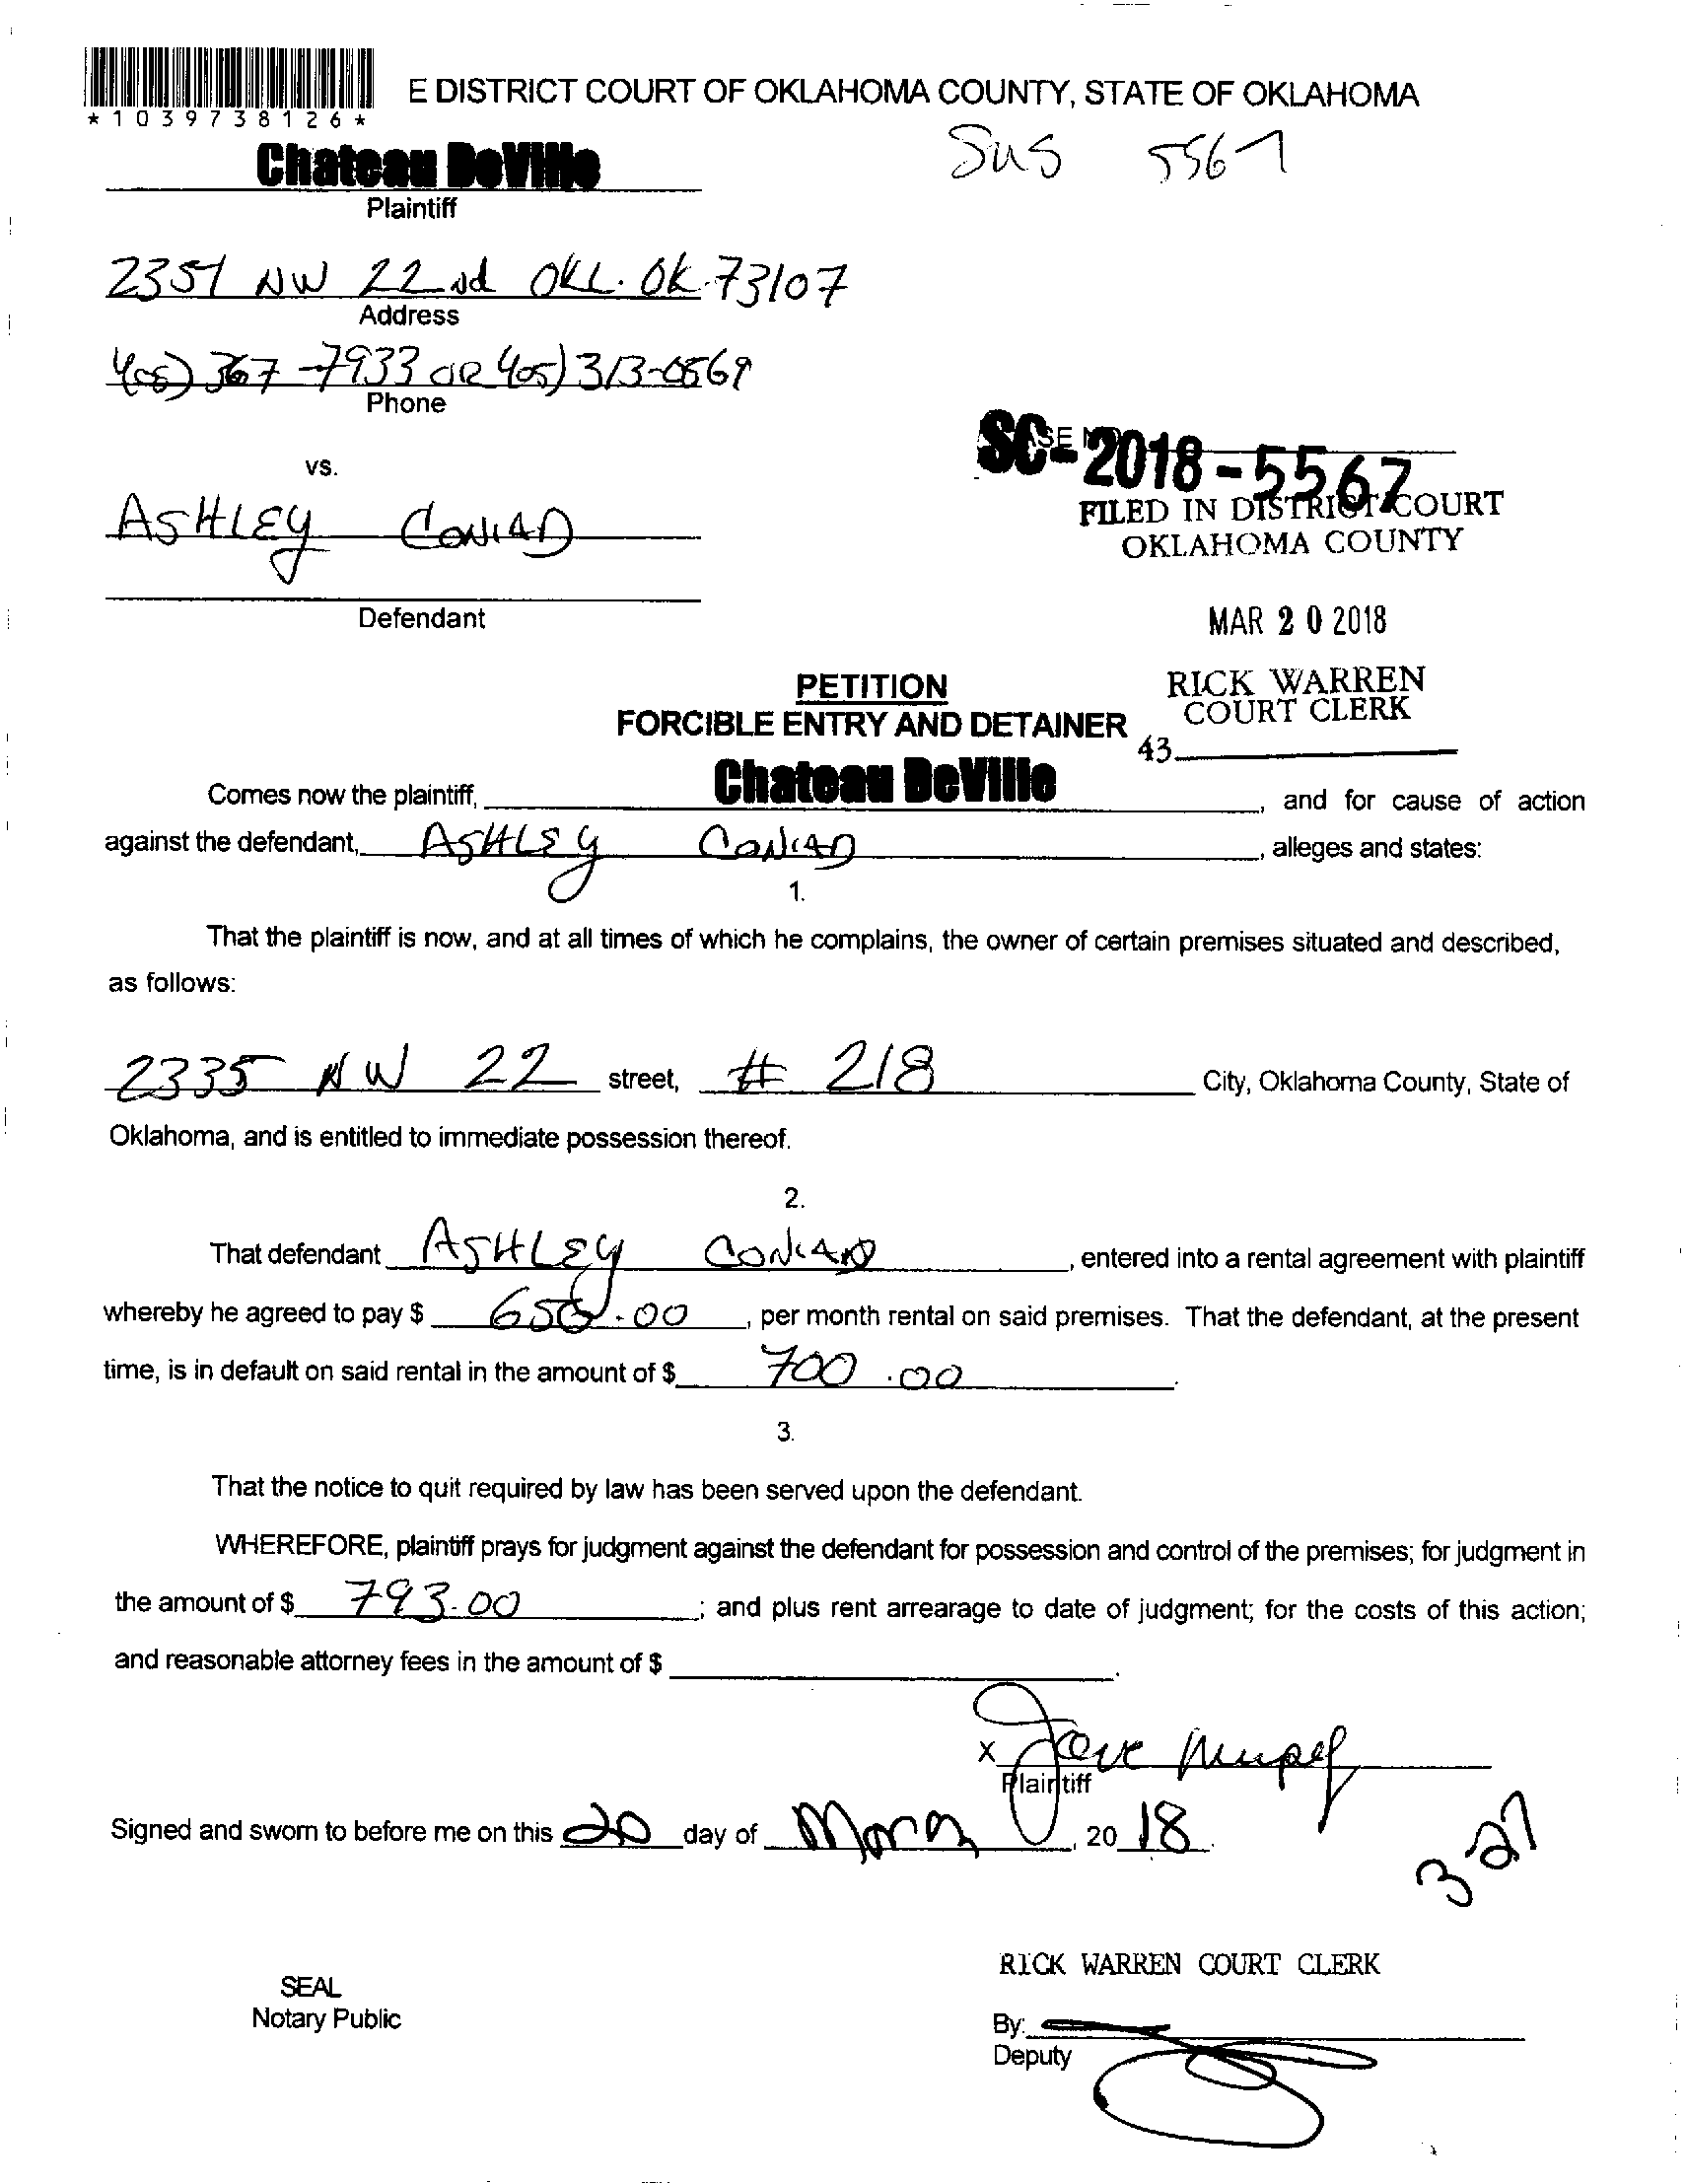 *1039738126*
E DISTRICT COURT OF OKLAHOMA COUNTY, STATE OF OKLAHOMA
Chateau DeVille
5567
Plaintiff
2351 NW 22nd OKC. OK. 73107
Address
405) 367-7933 OR 405) 313-0569
Phone
SC-2018-5567
vs.
FILED IN DISTRICT COURT
ASHLEY CONRAD
OKLAHOMA COUNTY
Defendant
MAR 20 2018
PETITION
RICK WARREN
FORCIBLE ENTRY AND DETAINER
COURT CLERK
43
Comes now the plaintiff, Chateau DeVille, and for cause of action
against the defendant, ASHLEY CONRAD, alleges and states:
1.
That the plaintiff is now, and at all times of which he complains, the owner of certain premises situated and described,
as follows:
2335 NW 22 street, # 218 City, Oklahoma County, State of
Oklahoma, and is entitled to immediate possession thereof.
2.
That defendant ASHLEY CONRAD, entered into a rental agreement with plaintiff
whereby he agreed to pay $ 650.00, per month rental on said premises. That the defendant, at the present
time, is in default on said rental in the amount of $ 700.00.
3.
That the notice to quit required by law has been served upon the defendant.
WHEREFORE, plaintiff prays for judgment against the defendant for possession and control of the premises; for judgment in
the amount of $ 793.00; and plus rent arrearage to date of judgment; for the costs of this action;
and reasonable attorney fees in the amount of $.
X
Plaintiff
Signed and sworn to before me on this 20 day of March, 2018.
3-27
RICK WARREN COURT CLERK
SEAL
Notary Public
By:
Deputy